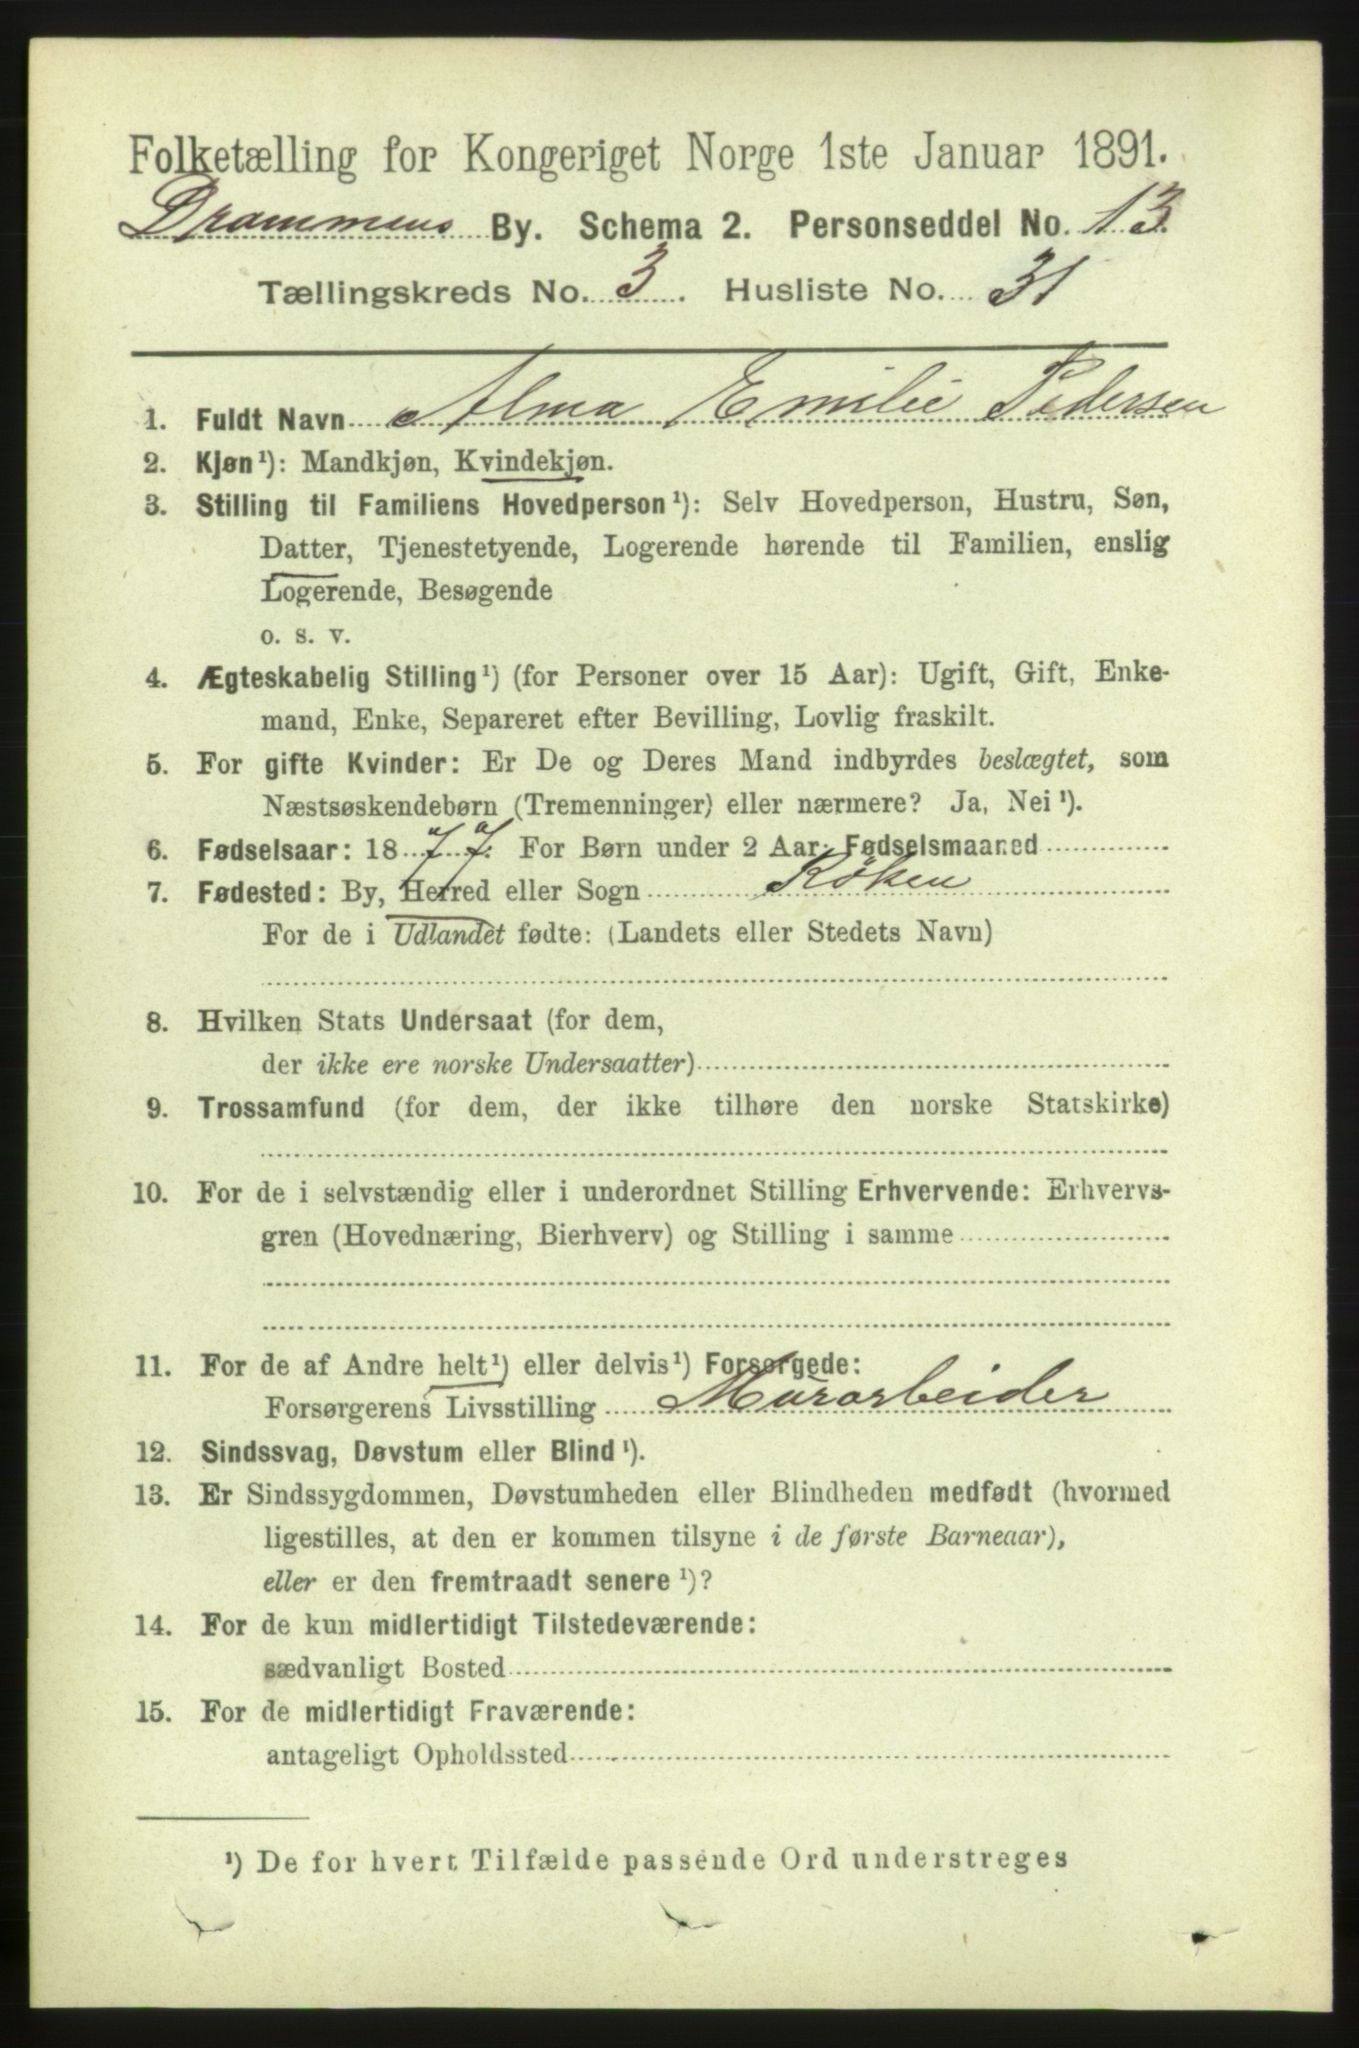 Folketælling for Kongeriget Norge 1ste Januar 1891.
Drammens By. Schema 2. Personseddel No. 13.
Tællingskreds No. 3. Husliste No. 31
1. Fuldt Navn Alma Emilie Pedersen
2. Kjøn¹): Mandkjøn, Kvindekjøn.
3. Stilling til Familiens Hovedperson¹): Selv Hovedperson, Hustru, Søn,
Datter, Tjenestetyende, Logerende hørende til Familien, enslig
Logerende, Besøgende
o. s. v.
4. Ægteskabelig Stilling¹) (for Personer over 15 Aar): Ugift, Gift, Enke-
mand, Enke, Separeret efter Bevilling, Lovlig fraskilt.
5. For gifte Kvinder: Er De og Deres Mand indbyrdes beslægtet, som
Næstsøskendebørn (Tremenninger) eller nærmere? Ja, Nei¹).
6. Fødselsaar: 1877. For Børn under 2 Aar: Fødselsmaaned
7. Fødested: By, Herred eller Sogn Røken
For de i Udlandet fødte: (Landets eller Stedets Navn)
8. Hvilken Stats Undersaat (for dem,
der ikke ere norske Undersaatter)
9. Trossamfund (for dem, der ikke tilhøre den norske Statskirke)
10. For de i selvstændig eller i underordnet Stilling Erhvervende: Erhvervs-
gren (Hovednæring, Bierhverv) og Stilling i samme
11. For de af Andre helt¹) eller delvis¹) Forsørgede:
Forsørgerens Livsstilling Murarbeider
12. Sindssvag, Døvstum eller Blind¹).
13. Er Sindssygdommen, Døvstumheden eller Blindheden medfødt (hvormed
ligestilles, at den er kommen tilsyne i de første Barneaar),
eller er den fremtraadt senere¹)?
14. For de kun midlertidigt Tilstedeværende:
sædvanligt Bosted
15. For de midlertidigt Fraværende:
antageligt Opholdssted
¹) De for hvert Tilfælde passende Ord understreges